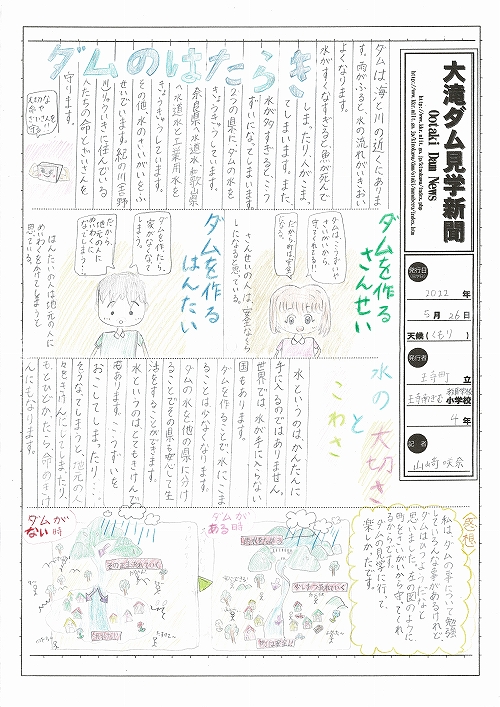 大滝ダム見学新聞
Ootaki Dam News
発行日
2022年
5月26日
天候(くもり)
発行者
王寺町立
王寺南義務教育学校
小学校
4年
記者
ダムのはたらき
ダムは、海と川の近くにありま
す。雨がふると、水の流れがいきおい
よくなります。
水がすくなすぎると魚が死んで
しまったり、人がこま
てしまいます。また、
水が多すぎると、こう
ずいになってしまいます。
2つの県にダムの水を
きょうきゅうしています。
奈良県
水道水
和歌県
へ水道水と工業用水を
きょうきゅうしています。
その他、水のさいがいをふ
せいでいます。紀の川(吉野
川)りゅういきに住んでいる
人たちの命とざいさんを
守ります。
ダムを作る
さんせい
ダムを作る
はんたい
さんせいの人は、安全なくら
しになると思っている。
ダムを作ったら、
家がなくなって
しまう。
だから、
地元の人に
めいわくに
なってしまう
はんたいの人は地元の人に
めいわくをかけてしまうと
思っている。
水の大切さ
と
こわさ
水というのは、かんたんに
手に入るのではありません。
世界では水が手に入らない
国もあります。
ダムを作ることで、水にこま
ることは少なくなります。
ダムの水を他の県に分け
ることでその県も安心して生
活をすることができます。
水というのはとてもきけんで
もあります。こうずいを
おこしてしまったり…。
そうなってしまうと、地元の人
々をきけんにしてしまったり、
もとひどかったら、命のきけ
んにもなります。
感想
私は、ダムの事について勉強
して、いろんな事があるけれど、
ダムはひつようだなと
思いました。左の図のように
町をさいがいから守ってくれ
るからです。
ダムの見学に行って、
楽しかったです。
ダムが
ある時
ダムが
ない時